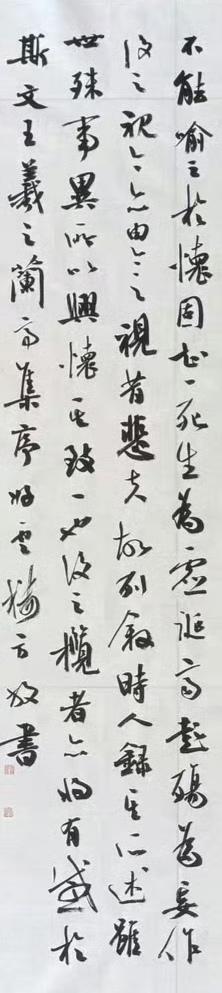 不能喻之於懷固知一死生為虛誕齊彭殤為妄作
後之視今亦由今之視昔悲夫故列敘時人錄其所述雖
世殊事異所以興懷其致一也後之攬者亦將有感於
斯文王羲之蘭亭集序 書